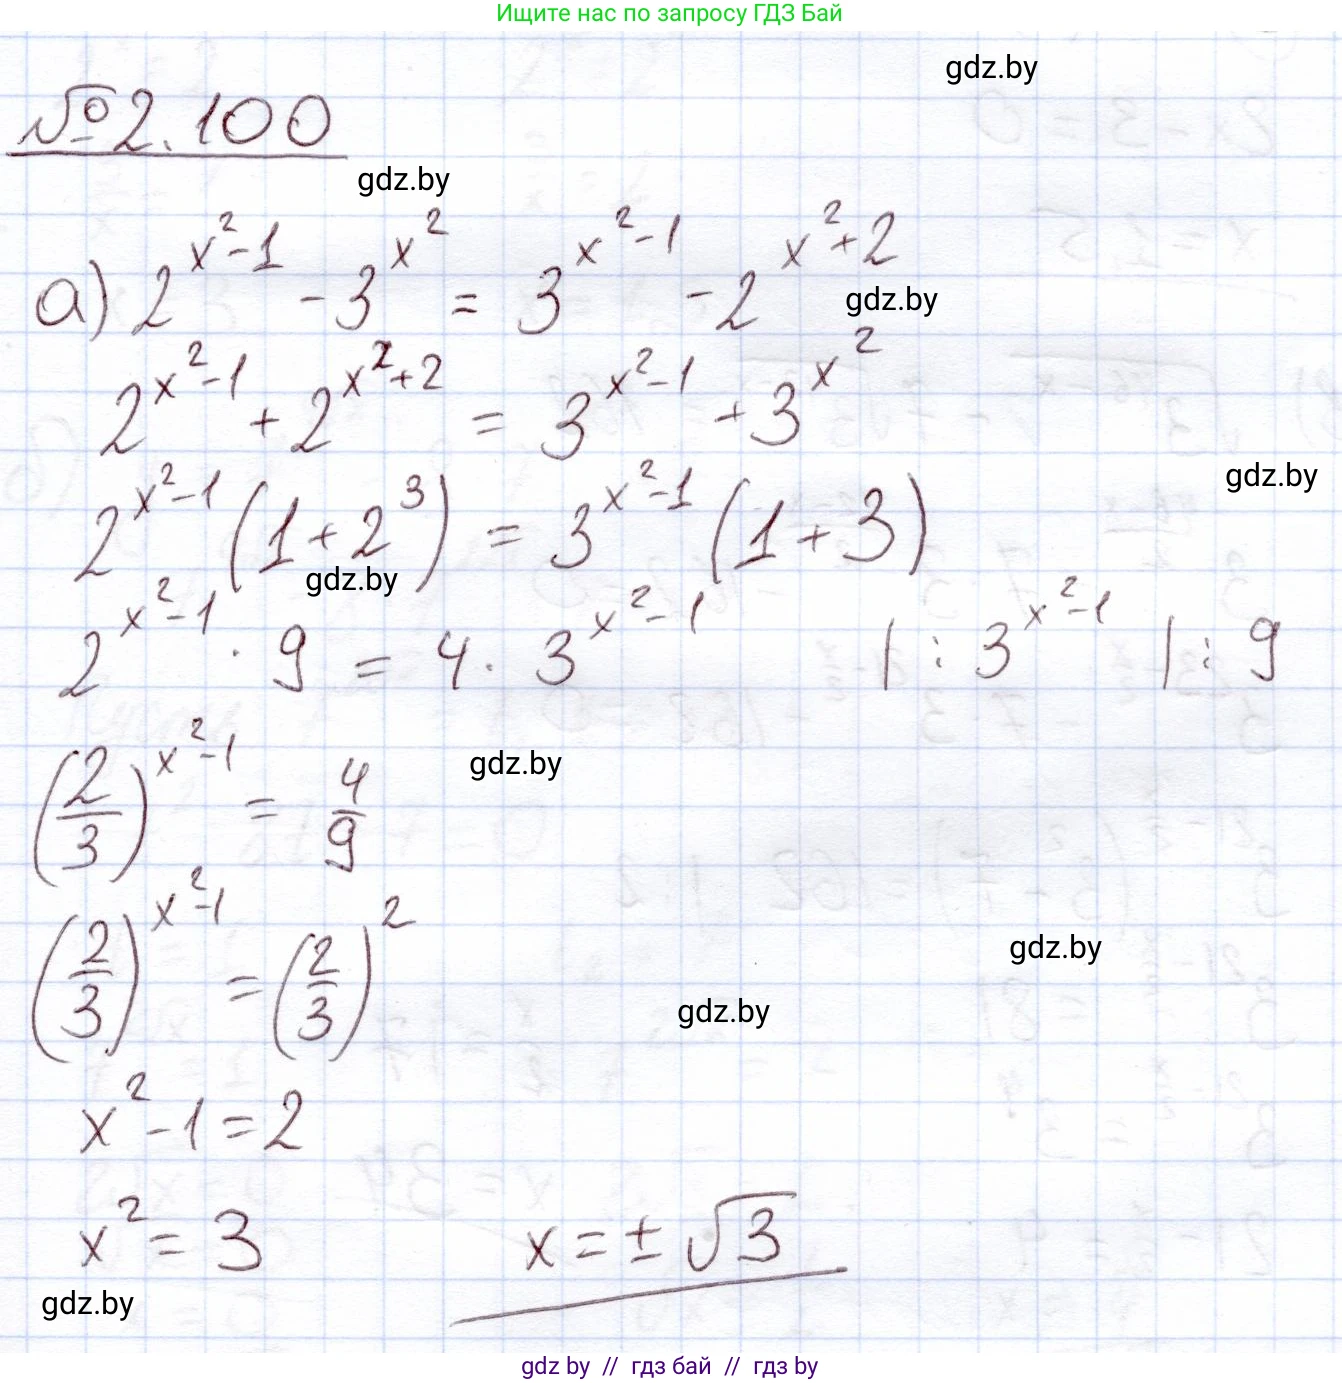 Ищите нас по запросу ГДЗ Бай
gdz.by
№ 2.100
gdz.by
а) 2^{x²-1} - 3^{x²} = 3^{x²-1} - 2^{x²+2}
gdz.by
2^{x²-1} + 2^{x²+2} = 3^{x²-1} + 3^{x²}
gdz.by
2^{x²-1} (1 + 2³) = 3^{x²-1} (1 + 3)
gdz.by
2^{x²-1} · 9 = 4 · 3^{x²-1} | : 3^{x²-1} | : 9
(2/3)^{x²-1} = 4/9
gdz.by
(2/3)^{x²-1} = (2/3)²
gdz.by
gdz.by
x² - 1 = 2
x² = 3 x = ± √3
gdz.by
gdz by // гдз бай // гдз by